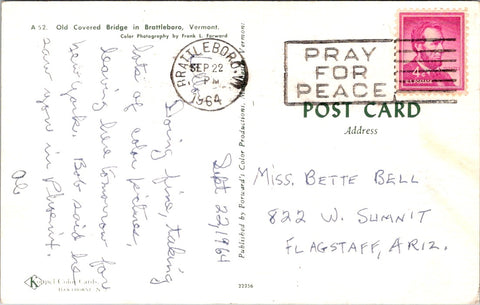 A 52. Old Covered Bridge in Brattleboro, Vermont.
Color Photography by Frank L. Forward
Sept 22, 1964
Doing fine, taking
lots of color pictures,
leaving here tomorrow for
New York. Bob said he
saw you in Phoenix.
Al
Color Cards
Published by Forward's Color Productions,
Vermont
22256
BRATTLEBORO, VT.
SEP 22
PM
1964
PRAY
FOR
PEACE
4¢
POST CARD
Address
MISS. BETTE BELL
822 W. SUMNIT
FLAGSTAFF, ARIZ.